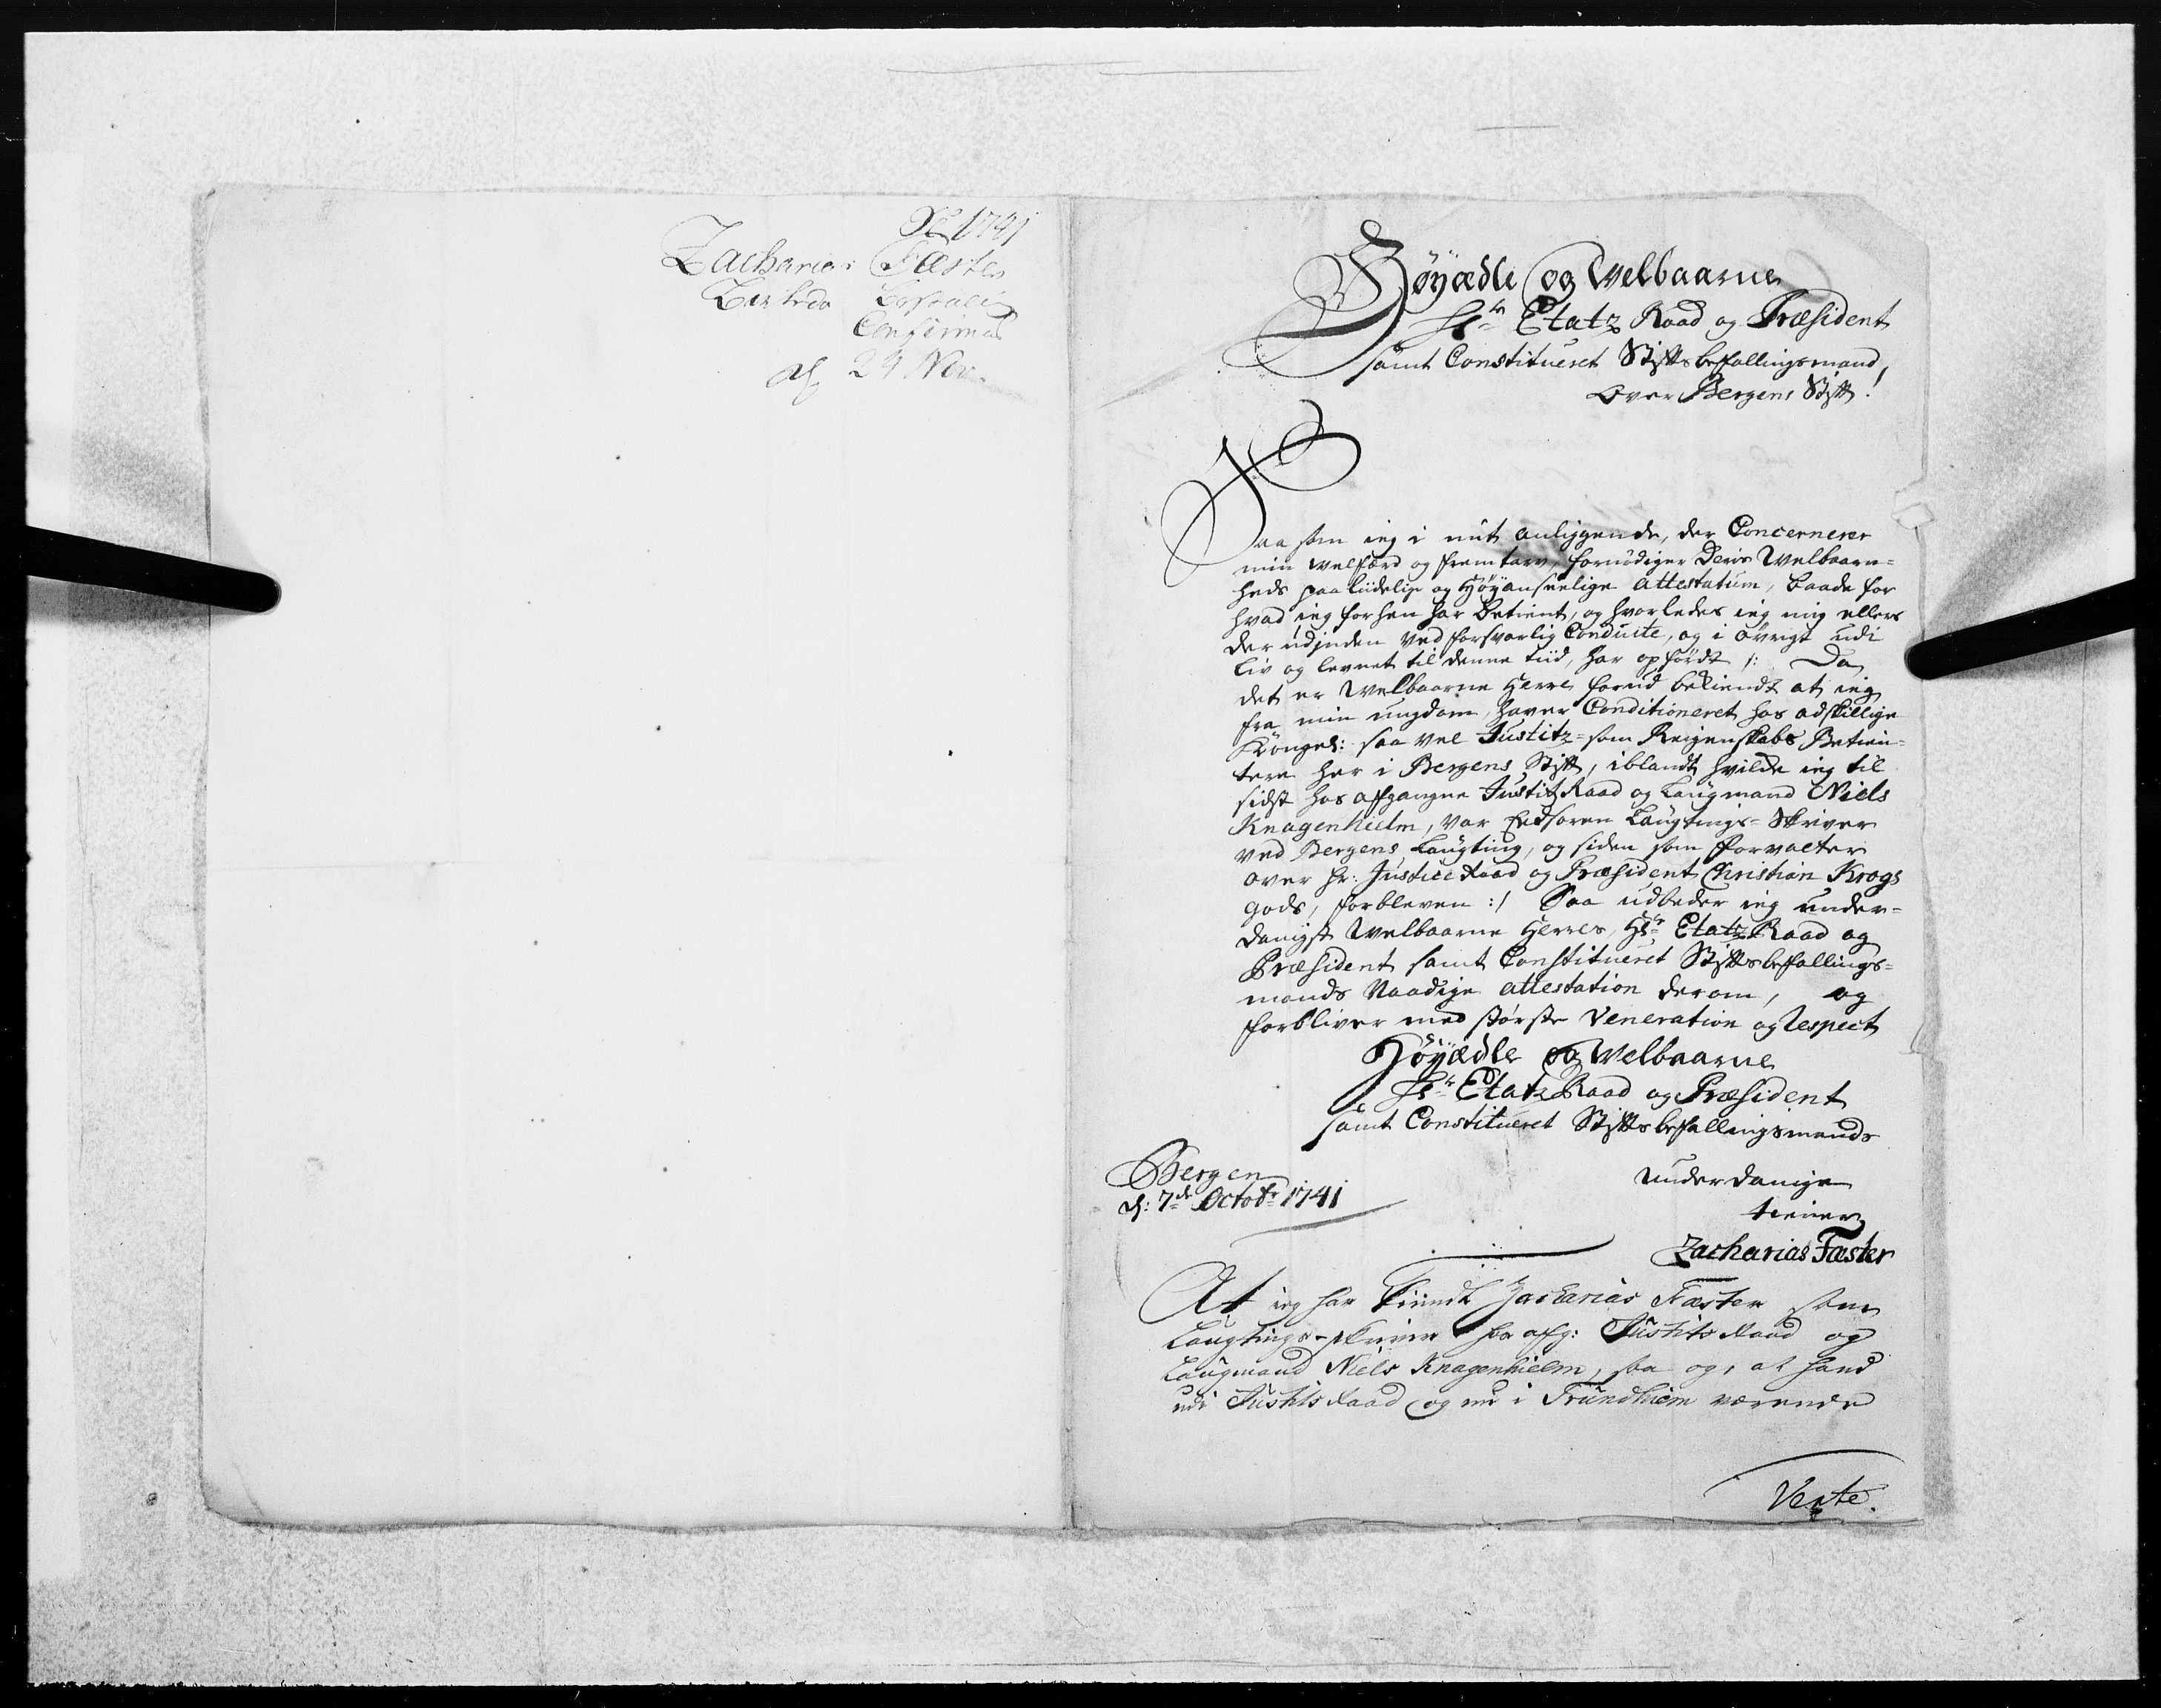 1741
Zacharias Fæster
Confirmat
24 Nov.
Høyædle og Welbaarne
Hr. Etatz Raad og Præsident
samt Constitueret Stiftsbefallingsmand,
Over Bergens Stift!
Saasom ieg i mit anliggende, der Concernerer
min Welfærd og fremtarv, fornødiger Deris Welbaarn-
heds paaliidelige og Høyanseelige attestatum, baade for
hvad ieg forhen har Betient, og hvorledes ieg mig ellers
der udjnden ved forsvarlig Conduite, og i øvrigt udi
liv og levnet til denne tiid, har opfördt /: Da
det er Welbaarne Herre forud bekiendt at ieg
fra min ungdom haver Conditioneret hos adskillige
Kongel: saa vel Justitz- som Regenskabs Betien-
tere her i Bergens Stift, iblandt hvilde ieg til
sidst hos afgangne Justitz Raad og Laugmand Niels
Knagenhielm, var Eedsoren Laugtings-Skriver
ved Bergens Laugting, og siden som Forvalter
over Hr: Justice Raad og Præsident Christian Krogs
gods, forbleven :/ Saa udbeder ieg under-
danigst Welbaarne Herres, Hr. Etatz Raad og
Præsident samt Constitueret Stiftsbefallings-
mands Naadige attestation derom, og
forbliver med største Veneration og Respect
Høyædle og Welbaarne
Hr. Etatz Raad og Præsident
samt Constitueret Stiftsbefallingsmands
Bergen
d: 7de Octobr 1741
underdanige
tiener
Zacharias Fæster
At ieg har kiendt Zacharias Fæster som
Laugtings-skriver hos afg: Justits Raad og
Laugmand Niels Knagenhielm, saa og, at hand
udi Justits Raad og nu i Trundhiem værende
Verte.